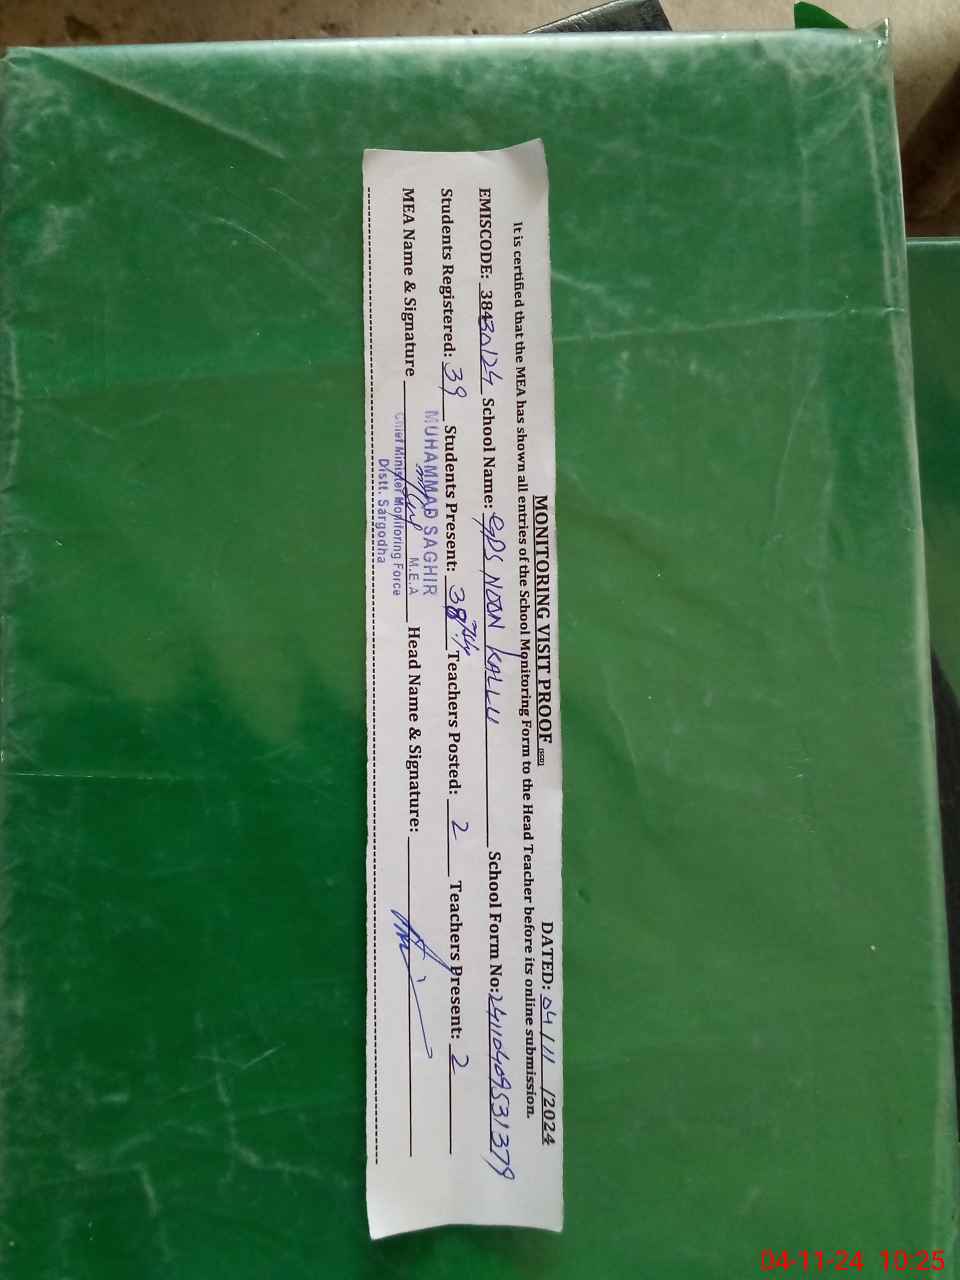 MONITORING VISIT PROOF DATED: 04/11/2024
It is certified that the MEA has shown all entries of the School Monitoring Form to the Head Teacher before its online submission.
EMISCODE: 38430124 School Name: GPS NOON KALLU School Form No: 24110409531379
Students Registered: 39 Students Present: 38 Teachers Posted: 2 Teachers Present: 2
MEA Name & Signature Head Name & Signature:
MUHAMMAD SAGHIR
M.E.A
Chief Minister Monitoring Force
Distt. Sargodha
04-11-24 10:25